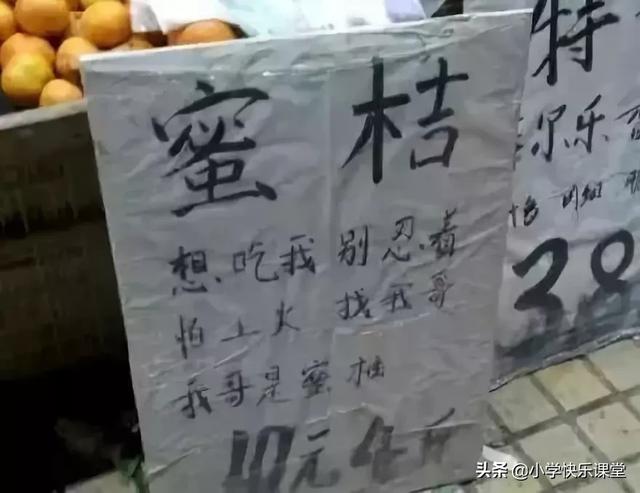 蜜桔
想吃我 别忍着
怕上火 找我哥
我哥是蜜柚
10元4斤
特
尔乐
38
头条 @小学快乐课堂